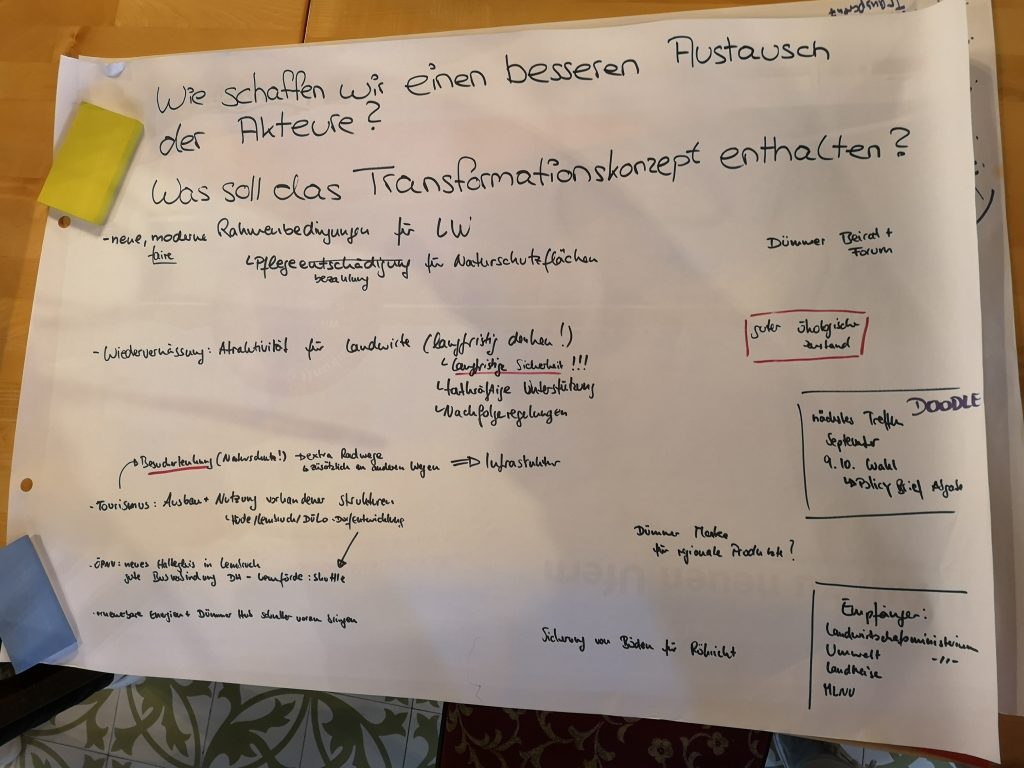 Wie schaffen wir einen besseren Austausch
der Akteure?
Was soll das Transformationskonzept enthalten?
- neue, moderne Rahmenbedingungen für LW
faire
↳ Pflegeentschädigung für Naturschutzflächen
bezahlung
Dümmer Beirat +
Forum
- Wiedervernässung: Attraktivität für Landwirte (langfristig denken!)
↳ langfristige Sicherheit!!!
↳ tatkräftige Unterstützung
↳ Nachfolgeregelungen
guter ökologischer
Zustand
nächstes Treffen DOODLE
September
9.10. Wahl
↳ Policy Brief Abgabe
Besucherlenkung (Naturschutz!) → extra Radwege
↳ zusätzlich an anderen Wegen ⇒ Infrastruktur
- Tourismus: Ausbau + Nutzung vorhandener Strukturen
↳ Hüde/Lembruch/DüLo - Dorfentwicklung
- ÖPNV: neues Haltegleis in Lembruch
gute Busverbindung DH - Lemförde: Shuttle
- erneuerbare Energien + Dümmer Hub schneller voran bringen
Dümmer Marke
für regionale Produkte?
Sicherung von Böden für Röhricht
Empfänger:
Landwirtschaftsministerium
Umwelt -"-
Landkreise
MLNU
neuen Ufern